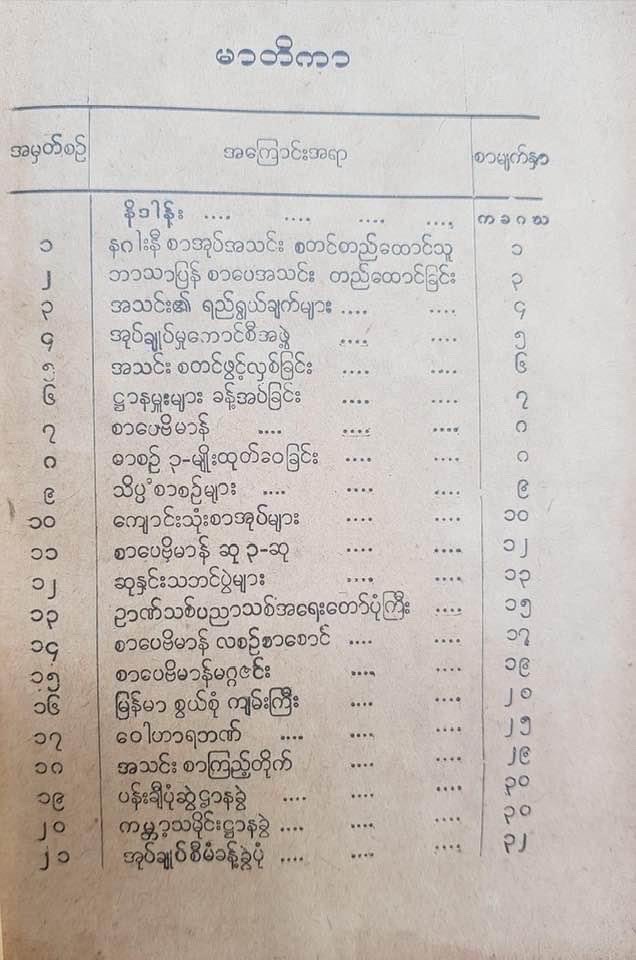 မာတိကာ
အမှတ်စဉ် အကြောင်းအရာ စာမျက်နှာ
နိဒါန်း .... .... .... .... ကခဂဃ
၁ နဂါးနီ စာအုပ်အသင်း စတင်တည်ထောင်သူ ၁
၂ ဘာသာပြန် စာပေအသင်း တည်ထောင်ခြင်း ၃
၃ အသင်း၏ ရည်ရွယ်ချက်များ .... .... ၄
၄ အုပ်ချုပ်မှုကောင်စီအဖွဲ့ .... .... ၅
၅ အသင်း စတင်ဖွင့်လှစ်ခြင်း .... .... ၆
၆ ဋ္ဌာနမှူးများ ခန့်အပ်ခြင်း .... .... ၇
၇ စာပေဗိမာန် .... .... .... ၈
၈ စာစဉ် ၃-မျိုးထုတ်ဝေခြင်း .... .... ၈
၉ သိပ္ပံစာစဉ်များ .... .... .... ၉
၁၀ ကျောင်းသုံးစာအုပ်များ .... .... ၁၀
၁၁ စာပေဗိမာန် ဆု ၃-ဆု .... .... ၁၂
၁၂ ဆုနှင်းသဘင်ပွဲများ .... .... ၁၃
၁၃ ဉာဏ်သစ်ပညာသစ်အရေးတော်ပုံကြီး .... ၁၅
၁၄ စာပေဗိမာန် လစဉ်စာစောင် .... .... ၁၇
၁၅ စာပေဗိမာန်မဂ္ဂဇင်း .... .... ၁၉
၁၆ မြန်မာ့ စွယ်စုံ ကျမ်းကြီး .... .... ၂၀
၁၇ ဝေါဟာရဘဏ် .... .... .... ၂၅
၁၈ အသင်း စာကြည့်တိုက် .... .... ၂၉
၁၉ ပန်းချီပုံဆွဲဋ္ဌာနခွဲ .... .... .... ၃၀
၂၀ ကမ္ဘာ့သမိုင်းဋ္ဌာနခွဲ .... .... .... ၃၀
၂၁ အုပ်ချုပ်စီမံခန့်ခွဲပုံ .... .... .... ၃၂